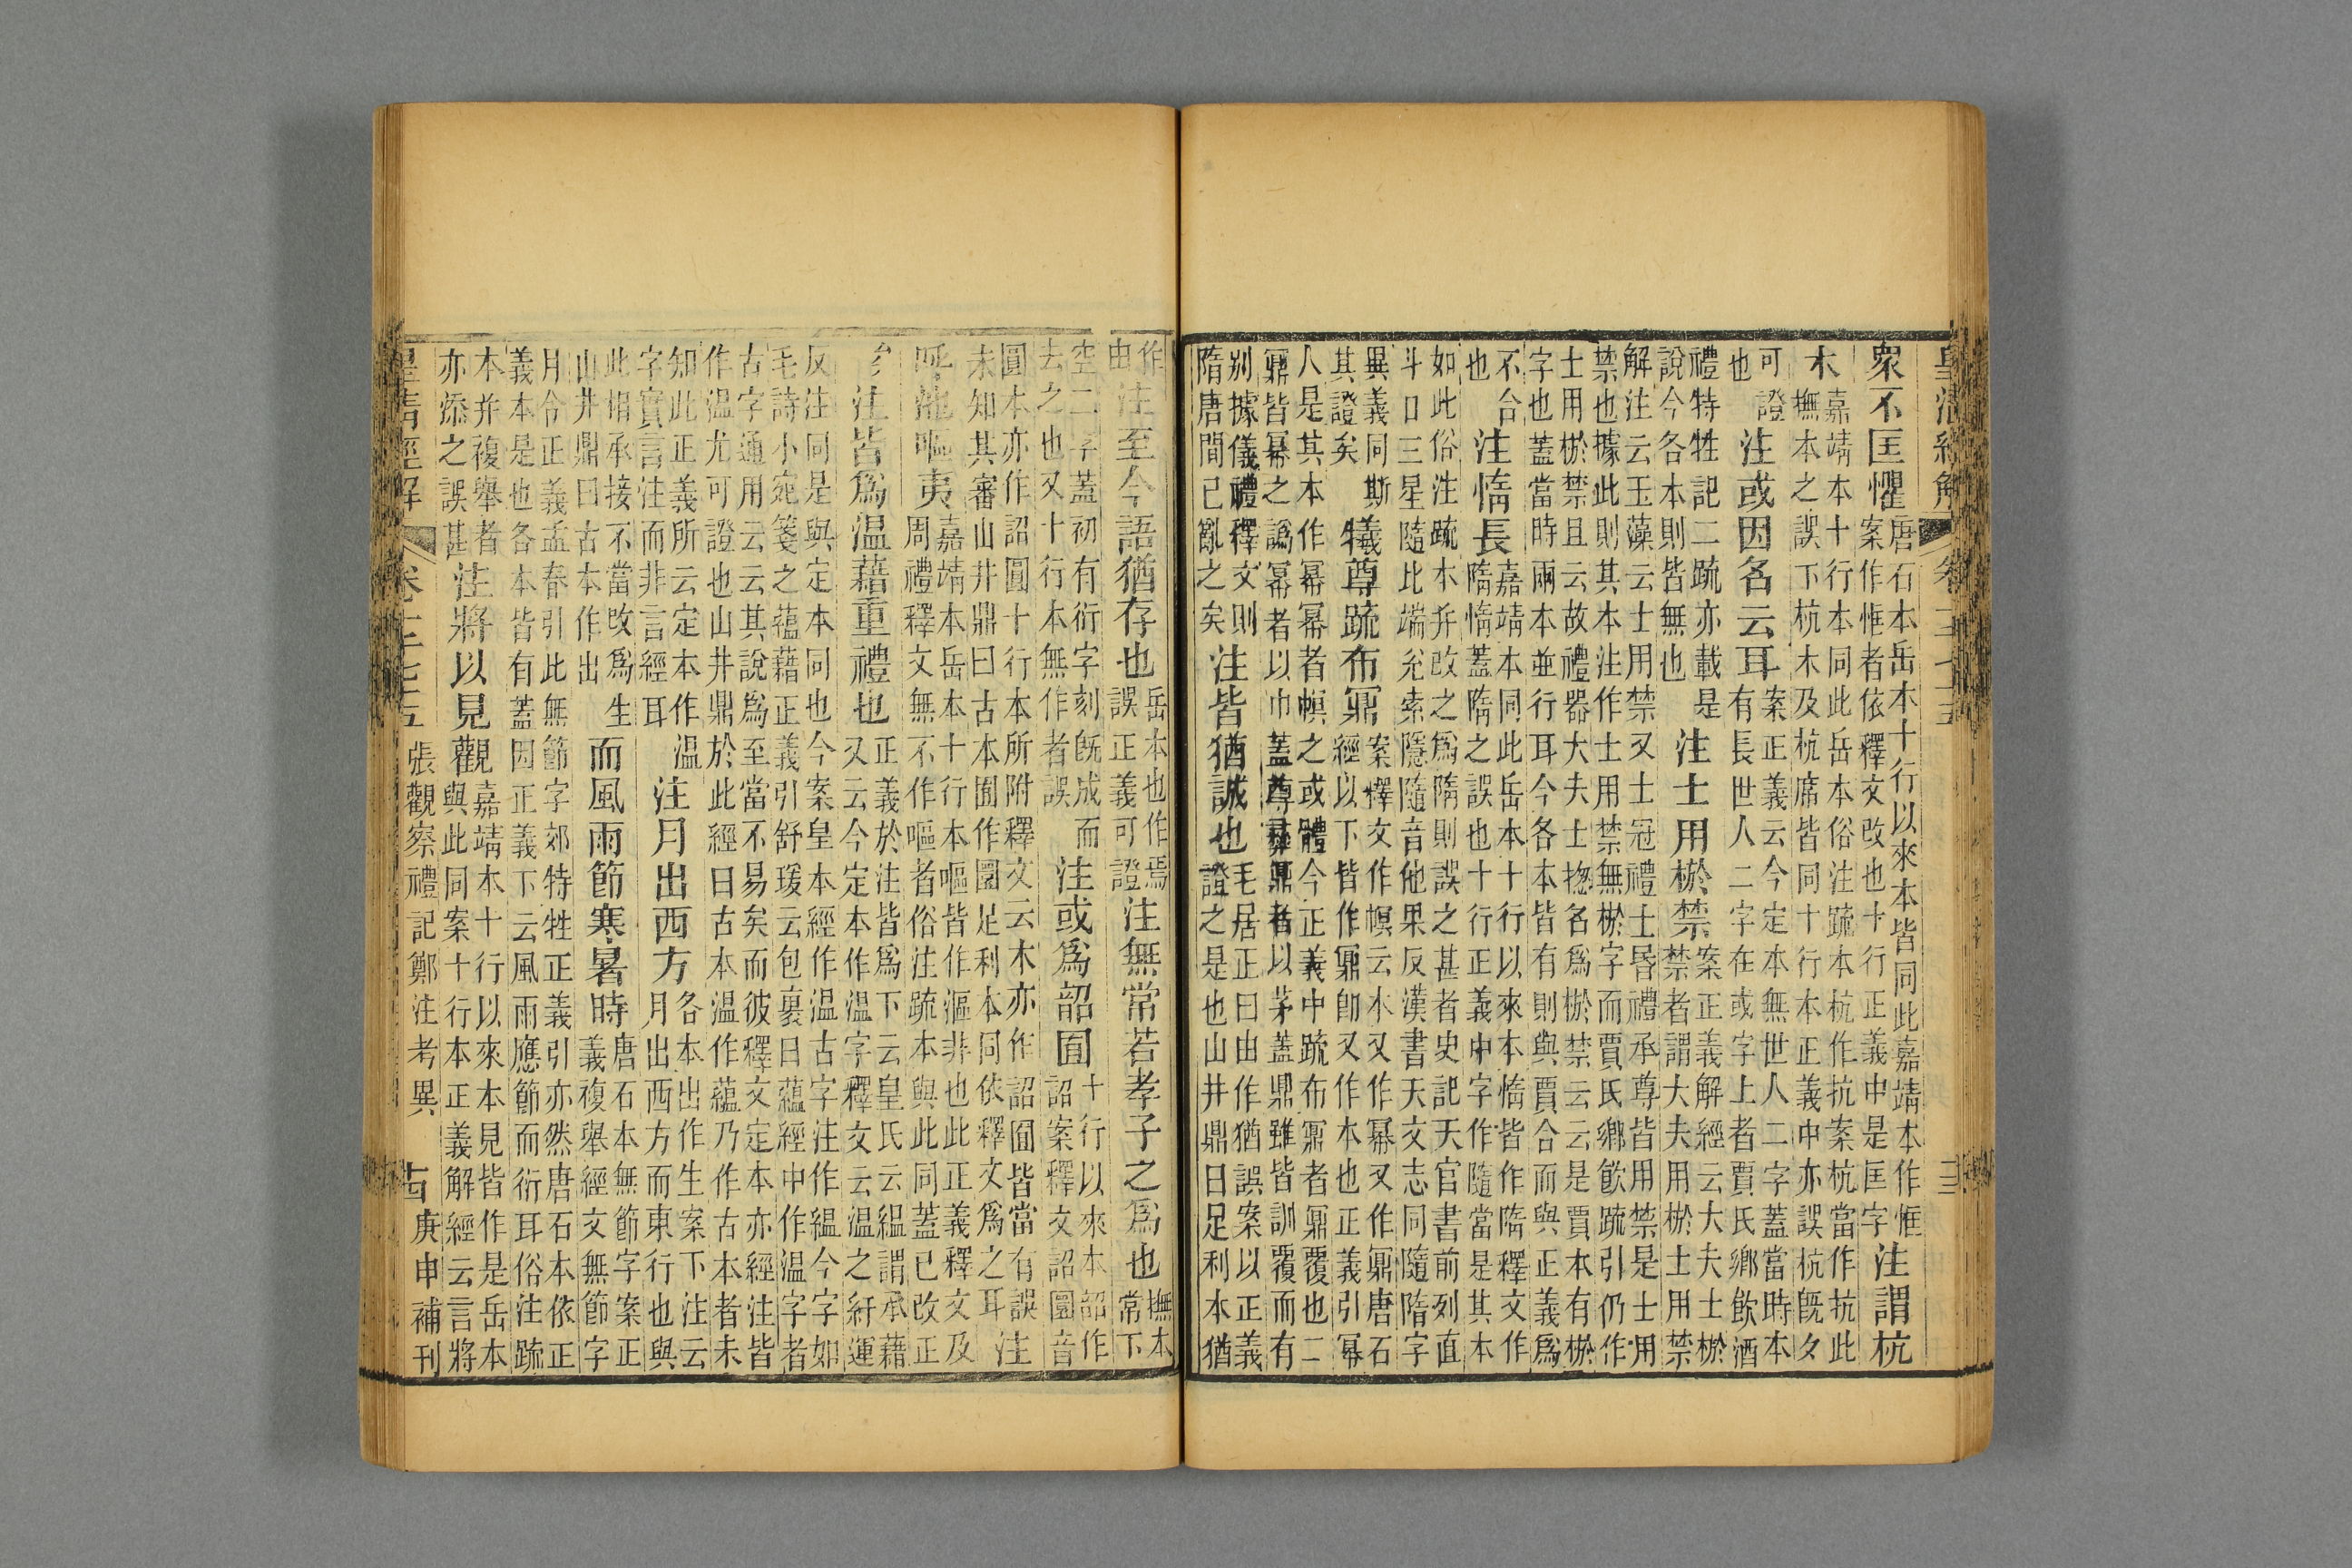 皇清經解 卷一千七十五
衆不匡懼
唐石本岳本十行以來本皆同此嘉靖本作恇
案作恇者依釋文改也十行正義中是匡字
注謂杭
木
嘉靖本十行本同此岳本俗注疏本杭作抗案杭當作抗此
撫本之誤下杭木及杭席皆同十行本正義中亦誤杭既夕
可證
也
注或因名云耳
案正義云今定本無世人二字蓋當時本
有長世人二字在或字上者賈氏鄉飲酒
禮特牲記二疏亦載是
說今各本則皆無也
注士用棜禁
案正義解經云大夫士棜
禁者謂大夫用棜士用禁
解注云玉藻云士用禁又士冠禮士昏禮承尊皆用禁是士用
禁也據此則其本注作士用禁無棜字而賈氏鄉飲疏引仍作
士用棜禁且云故禮器大夫士揔名爲棜禁云云是賈本有棜
字也蓋當時兩本並行耳今各本皆有則與賈合而與正義爲
不合
也
注惰長
嘉靖本同此岳本十行以來本惰皆作隋釋文作
隋惰蓋隋之誤也十行正義中字作隨當是其本
如此俗注疏本并改之爲隋則誤之甚者史記天官書前列直
斗口三星隨北端兊索隱隨音他果反漢書天文志同隨隋字
異義同斯
其證矣
犧尊疏布鼏
案釋文作幎云本又作冪又作鼏唐石
經以下皆作鼏卽又作本也正義引冪
人是其本作冪冪者幎之或體今正義中疏布鼏者鼏覆也二
鼏皆冪之譌冪者以巾蓋尊彝鼏者以茅蓋鼎雖皆訓覆而有
别據儀禮釋文則
隋唐間已亂之矣
注皆猶誠也
毛居正曰由作猶誤案以正義
證之是也山井鼎曰足利本猶
作
由
注至今語猶存也
岳本也作焉
誤正義可證
注無常若孝子之爲也
撫本
常下
空二字蓋初有衍字刻既成而
去之也又十行本無作者誤
注或爲韶囿
十行以來本韶作
詔案釋文詔圜音
圓本亦作詔圓十行本所附釋文云本亦作詔囿皆當有誤
未知其審山井鼎曰古本囿作圜足利本同依釋文爲之耳
注
呼池嘔夷
嘉靖本岳本十行本嘔皆作漚非也此正義釋文及
周禮釋文無不作嘔者俗注疏本與此同蓋已改正
注皆爲温藉重禮也
正義於注皆爲下云皇氏云縕謂承藉
又云今定本作温字釋文云温之紆運
反注同是與定本同也今案皇本經作温古字注作縕今字如
毛詩小宛箋之蘊藉正義引舒瑗云包裹曰蘊經中作温字者
古字通用云云其說爲至當不易矣而彼釋文定本亦經注皆
作温尤可證也山井鼎於此經曰古本温作蘊乃作古本者未
知此正義所云定本作温
字實言注而非言經耳
注月出西方
各本出作生案下注云
月出西方而東行也與
此相承接不當改爲生
山井鼎曰古本作出
而風雨節寒暑時
唐石本無節字案正
義複舉經文無節字
月令正義孟春引此無節字郊特牲正義引亦然唐石本依正
義本是也各本皆有蓋因正義下云風雨應節而衍耳俗注疏
本并複舉者
亦添之誤甚
注將以見觀
嘉靖本十行以來本見皆作是岳本
與此同案十行本正義解經云言將
皇清經解 卷一千七十五 張觀察禮記鄭注考異 十四 庚申補刊